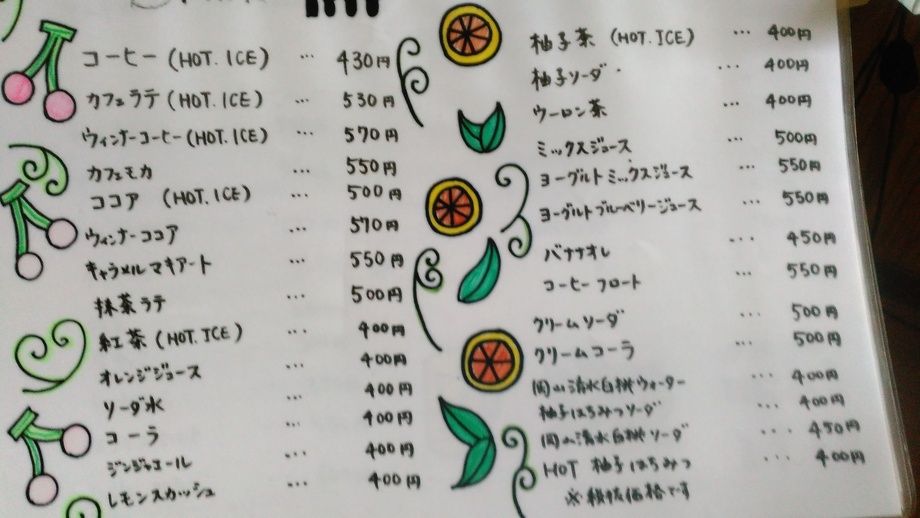 コーヒー (HOT. ICE) ... 430円
カフェラテ (HOT. ICE) ... 530円
ウィンナーコーヒー (HOT. ICE) ... 570円
カフェモカ ... 550円
ココア (HOT. ICE) ... 500円
ウィンナーココア ... 570円
キャラメルマキアート ... 550円
抹茶ラテ ... 500円
紅茶 (HOT. ICE) ... 400円
オレンジジュース ... 400円
ソーダ水 ... 400円
コーラ ... 400円
ジンジャエール ... 400円
レモンスカッシュ ... 400円
柚子茶 (HOT. ICE) ... 400円
柚子ソーダ ... 400円
ウーロン茶 ... 400円
ミックスジュース ... 500円
ヨーグルトミックスジュース ... 550円
ヨーグルトブルーベリージュース ... 550円
バナナオレ ... 450円
コーヒーフロート ... 550円
クリームソーダ ... 500円
クリームコーラ ... 500円
岡山清水白桃ウォーター ... 400円
柚子はちみつソーダ ... 400円
岡山清水白桃ソーダ ... 450円
HOT 柚子はちみつ ... 400円
※税抜価格です